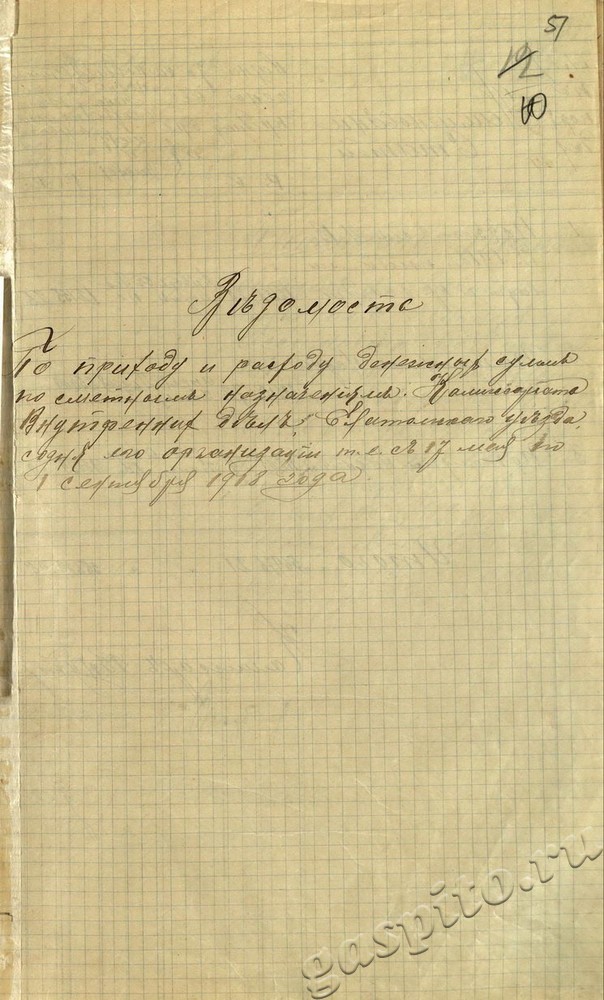 51
12
10
Вѣдомость
По приходу и расходу денежных суммъ
по сметнымъ назначенiямъ. Комиссарiата
Внутренних дѣлъ, Елатомского уѣзда,
со дня его организацiи т.е. съ 17 мая по
1 сентября 1918 года.
gaspito.ru